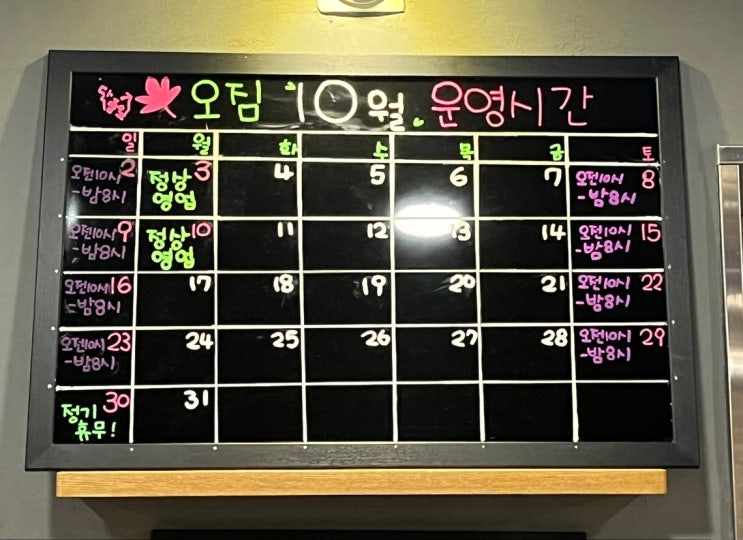 오짐 10월 운영시간
일 월 화 수 목 금 토
2 3 4 5 6 7 8
오전10시 -밤8시
정상 영업
오전10시 -밤8시
9 10 11 12 13 14 15
오전10시 -밤8시
정상 영업
오전10시 -밤8시
16 17 18 19 20 21 22
오전10시 -밤8시
오전10시 -밤8시
23 24 25 26 27 28 29
오전10시 -밤8시
오전10시 -밤8시
30 31
정기 휴무!